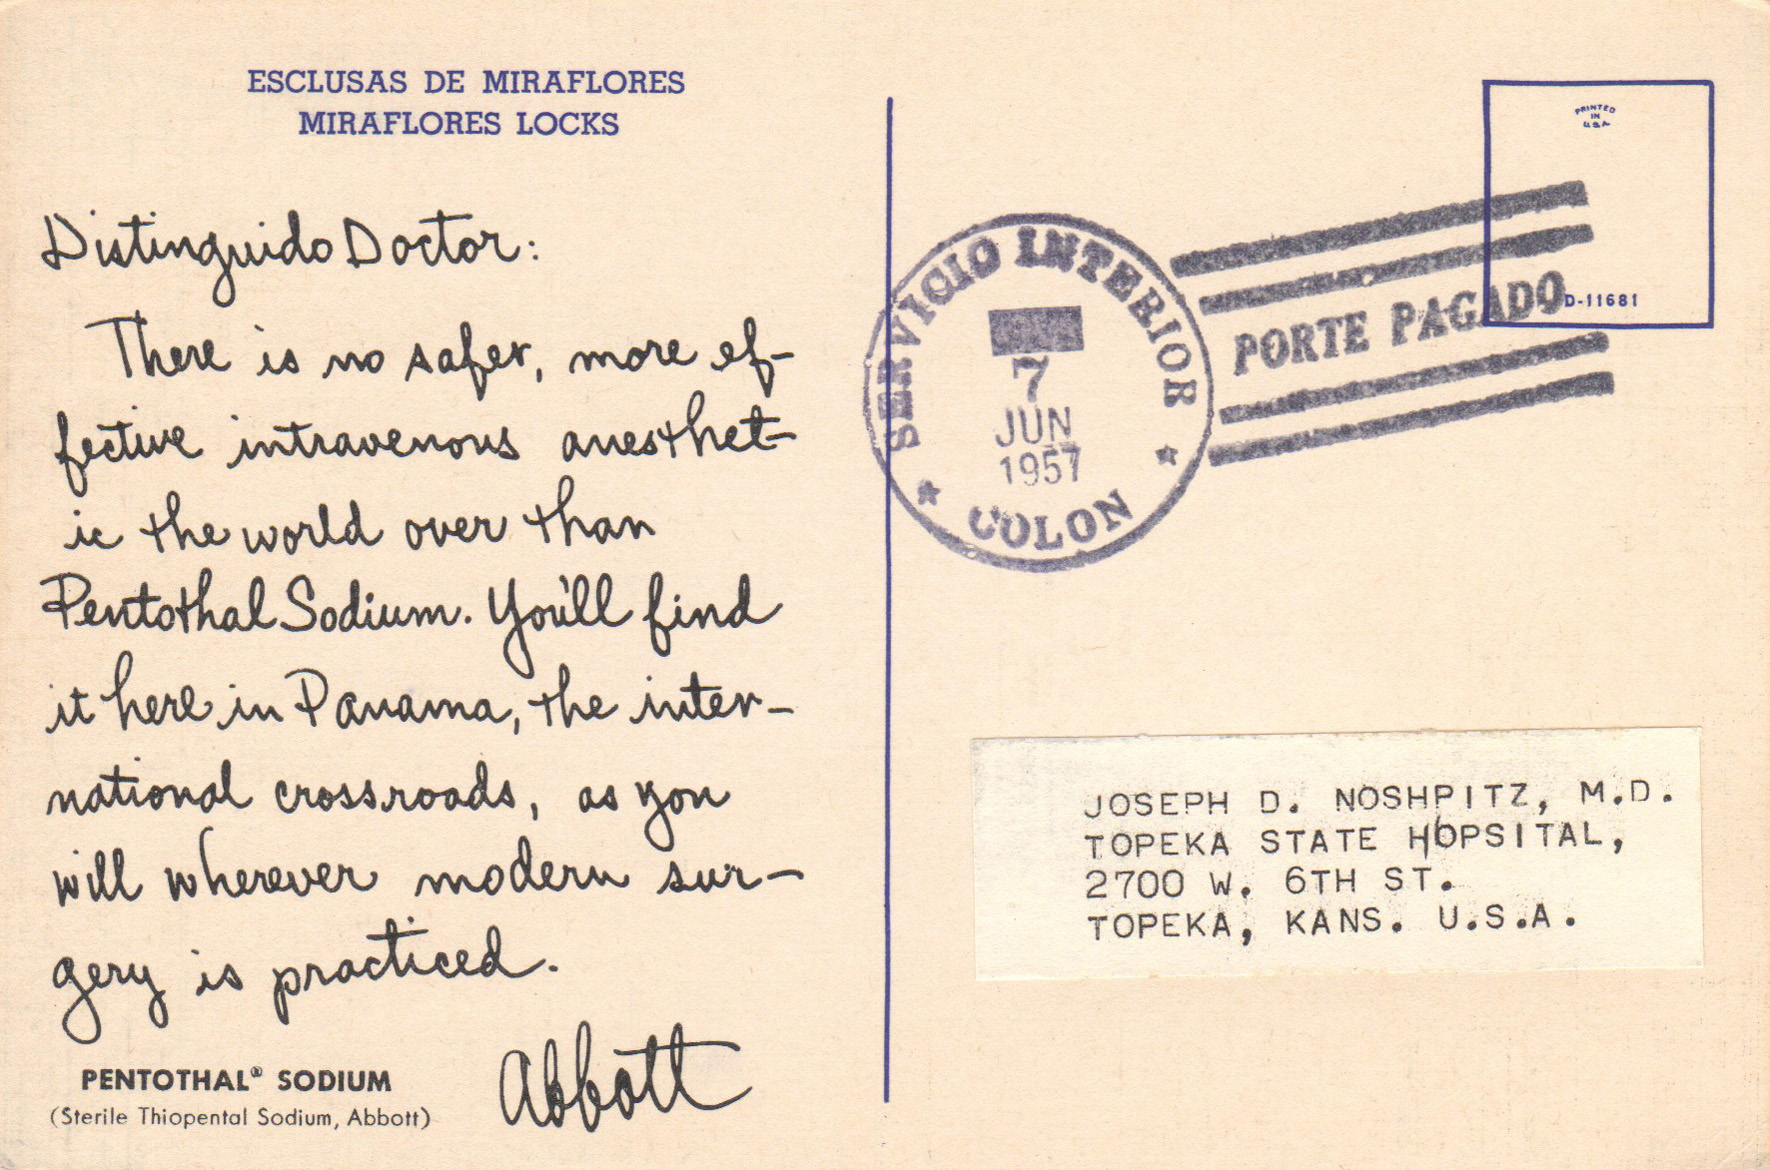 ESCLUSAS DE MIRAFLORES
MIRAFLORES LOCKS
Distinguido Doctor:
There is no safer, more ef-
fective intravenous anesthet-
ic the world over than
Pentothal Sodium. You'll find
it here in Panama, the inter-
national crossroads, as you
will wherever modern sur-
gery is practiced.
Abbott
PENTOTHAL® SODIUM
(Sterile Thiopental Sodium, Abbott)
PRINTED
IN
U.S.A.
D-11681
SERVICIO INTERIOR
7
JUN
1957
COLON
PORTE PAGADO
JOSEPH D. NOSHPITZ, M.D.
TOPEKA STATE HOPSITAL,
2700 W. 6TH ST.
TOPEKA, KANS. U.S.A.